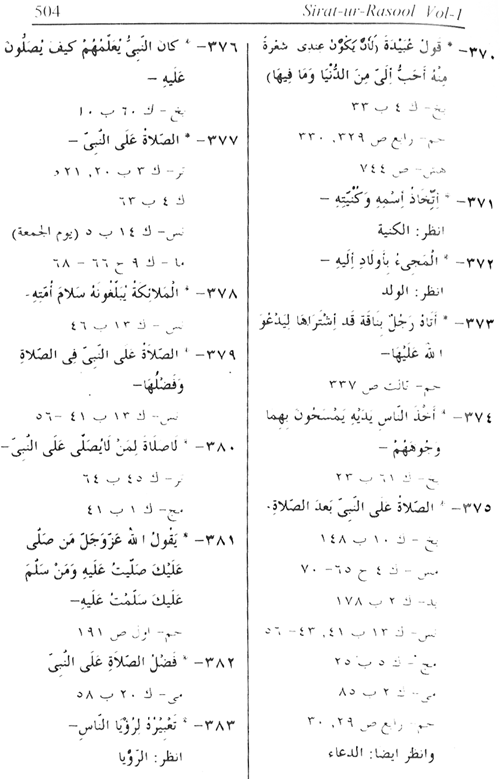 504
Sirat-ur-Rasool Vol-1
٣٧٠- * قَولُ عُبَيْدَةَ (لَأنْ يَكُوْنَ عِندِى شَعْرَةً
مِنْهُ أحَبُّ اِلَىَّ مِنَ الدُّنْيَا وَمَا فِيهَا)
بخ- ك ٤ ب ٣٣
حم- رابع ص ٣٢٩, ٣٣٠
هش- ص ٧٤٤
٣٧١- * اِتِّخَاذُ اِسْمِهِ وَكُنْيَتِهِ -
انظر: الكنية
٣٧٢- * الْمَجِىءُ بِأولَادٍ اِلَيهِ -
انظر: الولد
٣٧٣- * أتَاهُ رَجُلٌ بِنَاقَة قَد اِشْتَرَاهَا لِيَدْعُوَ
اللهَ عَلَيْهَا-
حم- ثالث ص ٣٣٧
٣٧٤- * أخَذَ النَّاسِ يَدَيْهِ يَمْسَحُونَ بِهِما
وَجُوهَهُمْ -
بخ- ك ٦١ ب ٢٣
٣٧٥- * الصَّلَاةُ عَلَى النَّبِىِّ بَعدَ الصَّلَاةِ.
بخ - ك ١٠ ب ١٤٨
مس- ك ٤ ح ٦٥- ٧٠
بد- ك ٢ ب ١٧٨
نس- ك ١٣ ب ٤١, ٤٣- ٥٦
مج- ك ٥ ب ٢٥
مى- ك ٢ ب ٨٥
حم- رابع ص ٢٩, ٣٠
وانظر ايضا: الدعاء
٣٧٦- * كَانَ النَّبِىُّ يُعَلِّمُهُمْ كَيفَ يُصَلُّونَ
عَلَيهِ -
بخ- ك ٦٠ ب ١٠
٣٧٧- * الصَّلَاةُ عَلَى النَّبِىِّ -
تر- ك ٣ ب ٢٠, ٢١ و
ك ٤ ب ٦٣
نس- ك ١٤ ب ٥ (يوم الجمعة)
ما- ك ٩ ح ٦٦- ٦٨
٣٧٨- * الْمَلَائِكَةُ يُبَلِّغُونَهُ سَلَامَ اُمَّتِهِ.
نس- ك ١٣ ب ٤٦
٣٧٩- * الصَّلَاةُ عَلَى النَّبِىِّ فِى الصَّلَاةِ
وَفَضْلُهَا-
نس- ك ١٣ ب ٤١ -٥٦
٣٨٠- * لَاصَلَاةَ لِمَنْ لَايُصَلِّى عَلَى النَّبِىِّ-
تر- ك ٤٥ ب ٦٤
مج- ك ١ ب ٤١
٣٨١- * يَقُولُ اللهُ عَزَّوَجَلَّ مَن صَلَّى
عَلَيْكَ صَلَّيتُ عَلَيهِ وَمَنْ سَلَّمَ
عَلَيكَ سَلَّمْتُ عَلَيهِ-
حم- اول ص ١٩١
٣٨٢- * فَضْلُ الصَّلَاةِ عَلَى النَّبِىِّ
مى- ك ٢٠ ب ٥٨
٣٨٣- * تَعْبِيْرُهُ لِرُؤيَا النَّاسِ-
انظر: الرؤيا